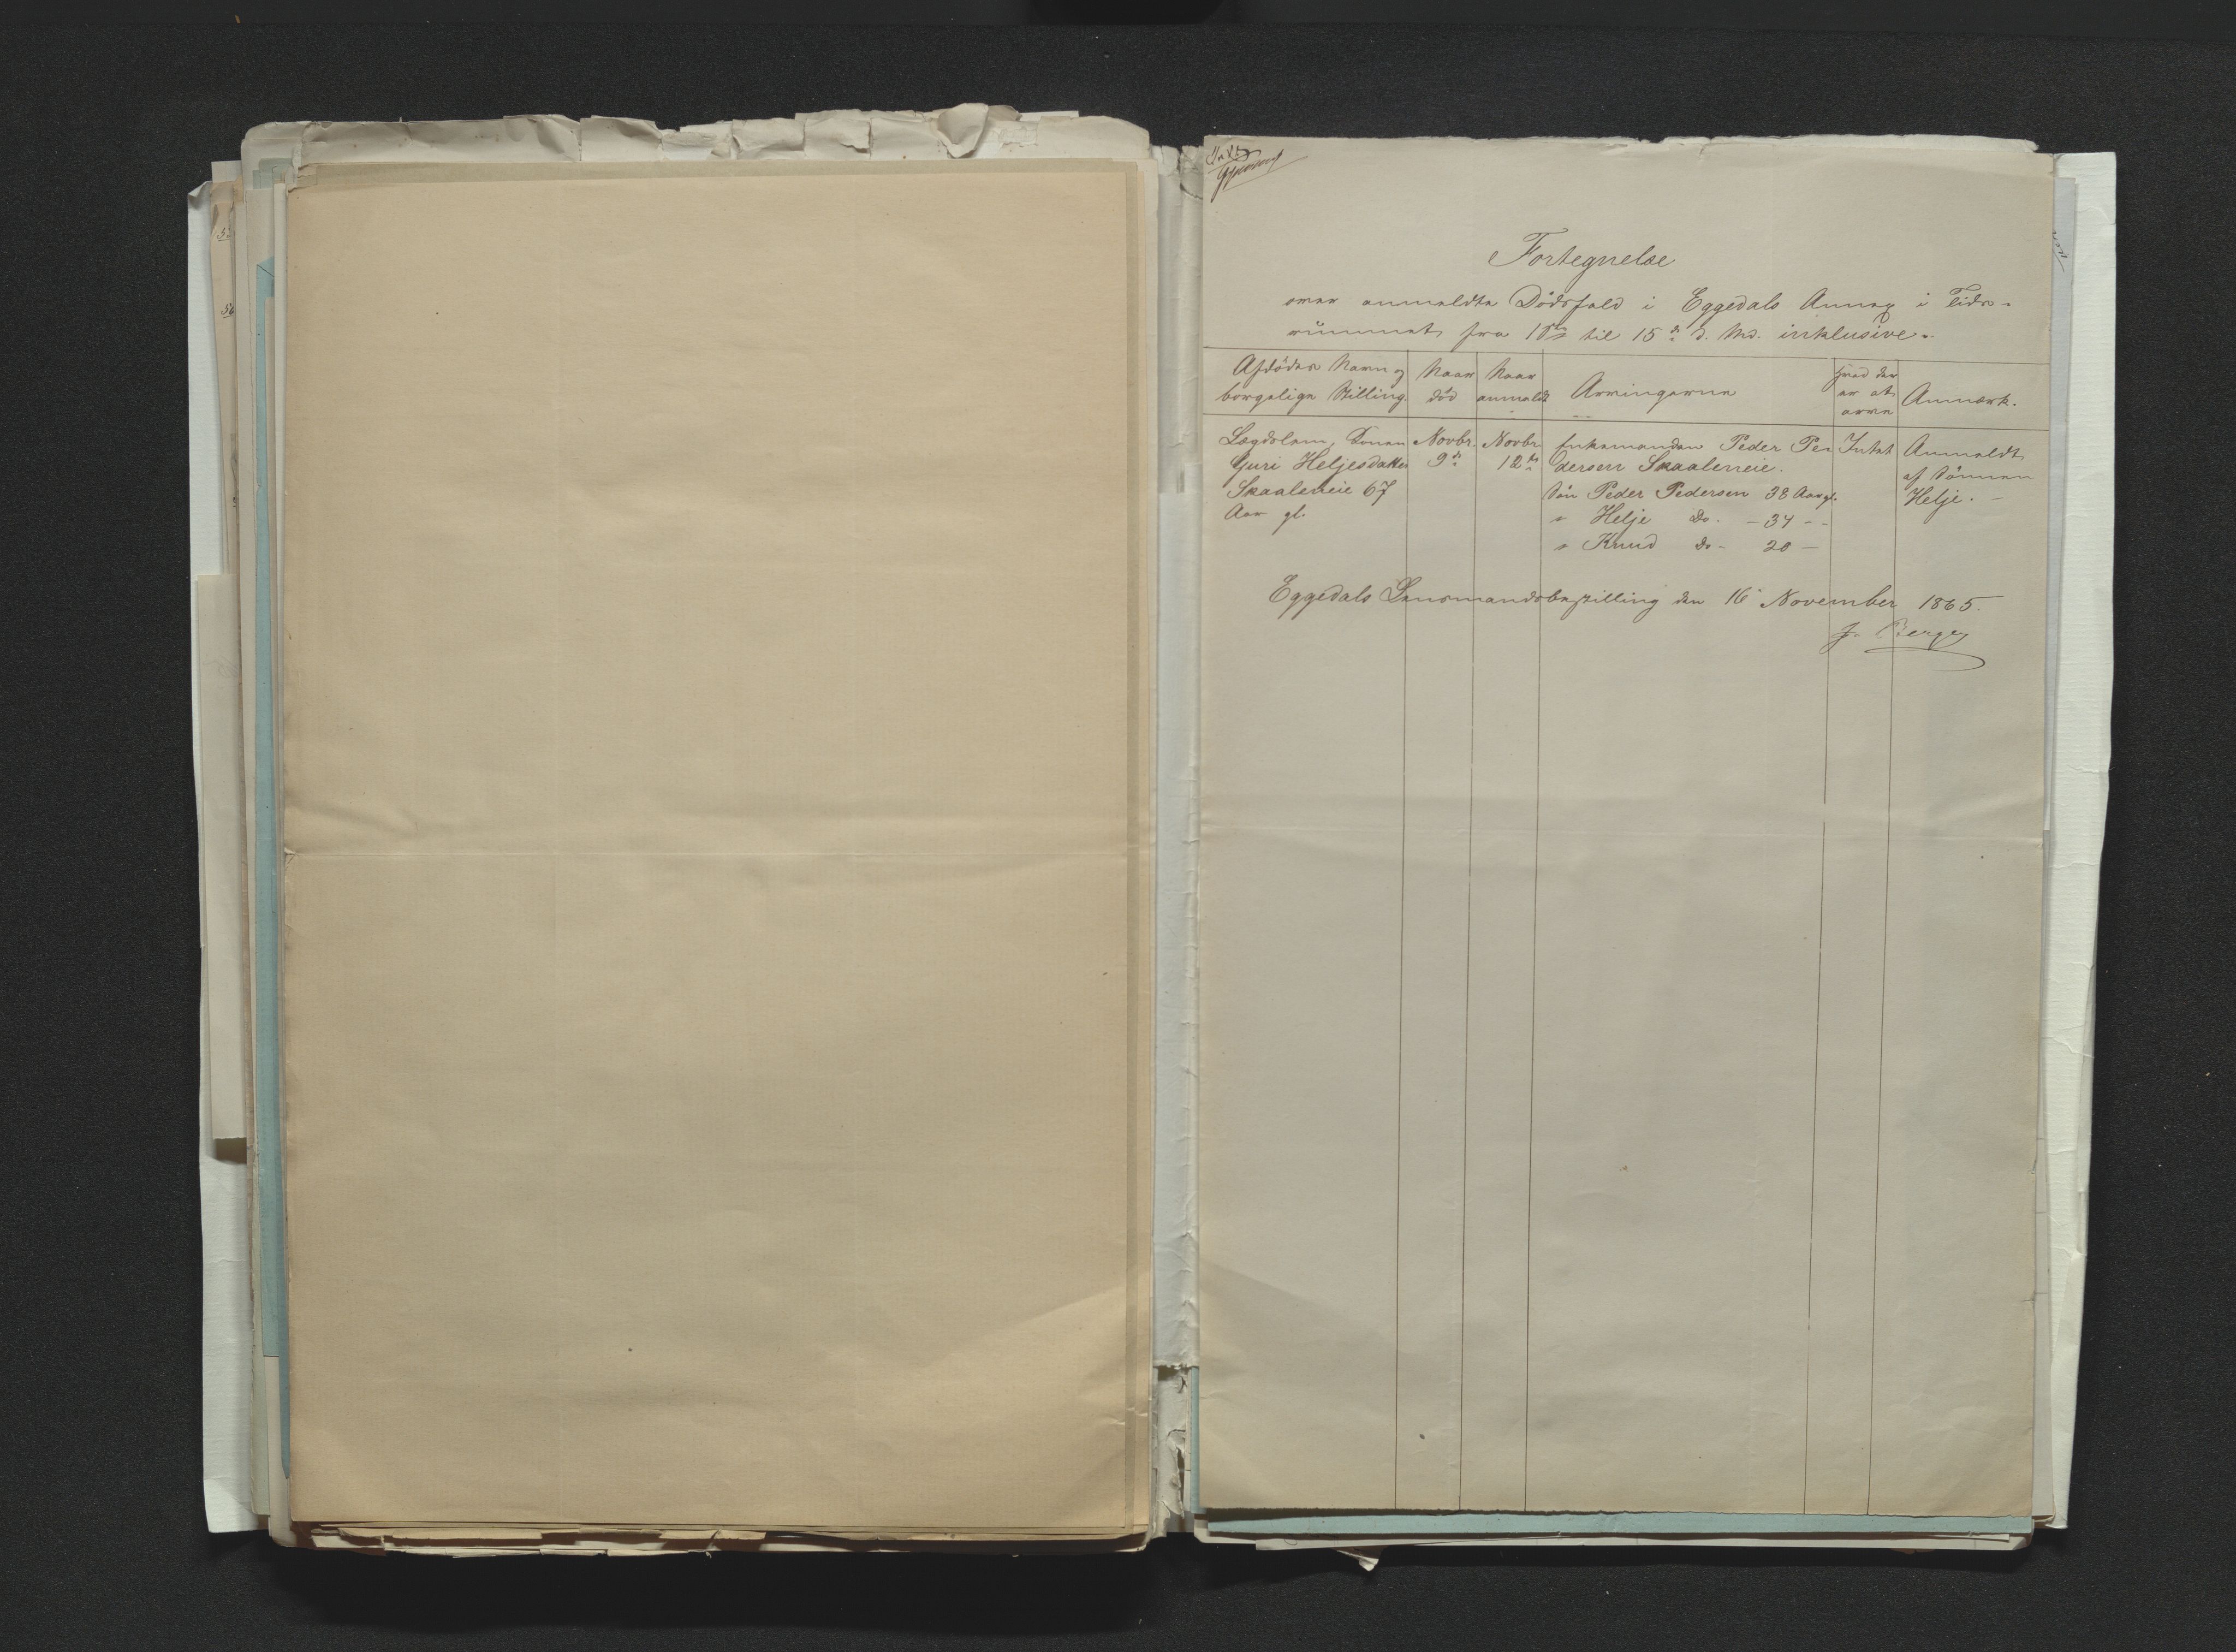 Fortegnelse
over anmeldte Dödsfald i Eggedals Annex i Tids-
rummet fra 1ste til 15de d. Md. inklusive.
Afdödes Navn og
borgerlige Stilling.
Naar
död
Naar
anmeldt
Arvingerne
hvad der
er at
arve
Anmærk.
Lægdslem, Konen
Guri Heljesdatter
Skaaleneie 67
Aar gl.
Novbr.
9de
Novbr.
12te
Enkemanden Peder Pe
dersen Skaaleneie.
Sön Peder Pedersen 38 Aar gl.
" Helje Do. - 34 - -
" Knud Do - 28 -
Intet
Anmeldt
af Sönnen
Helje. -
Eggedals Lensmandsbestilling den 16 November 1865.
J. Berge